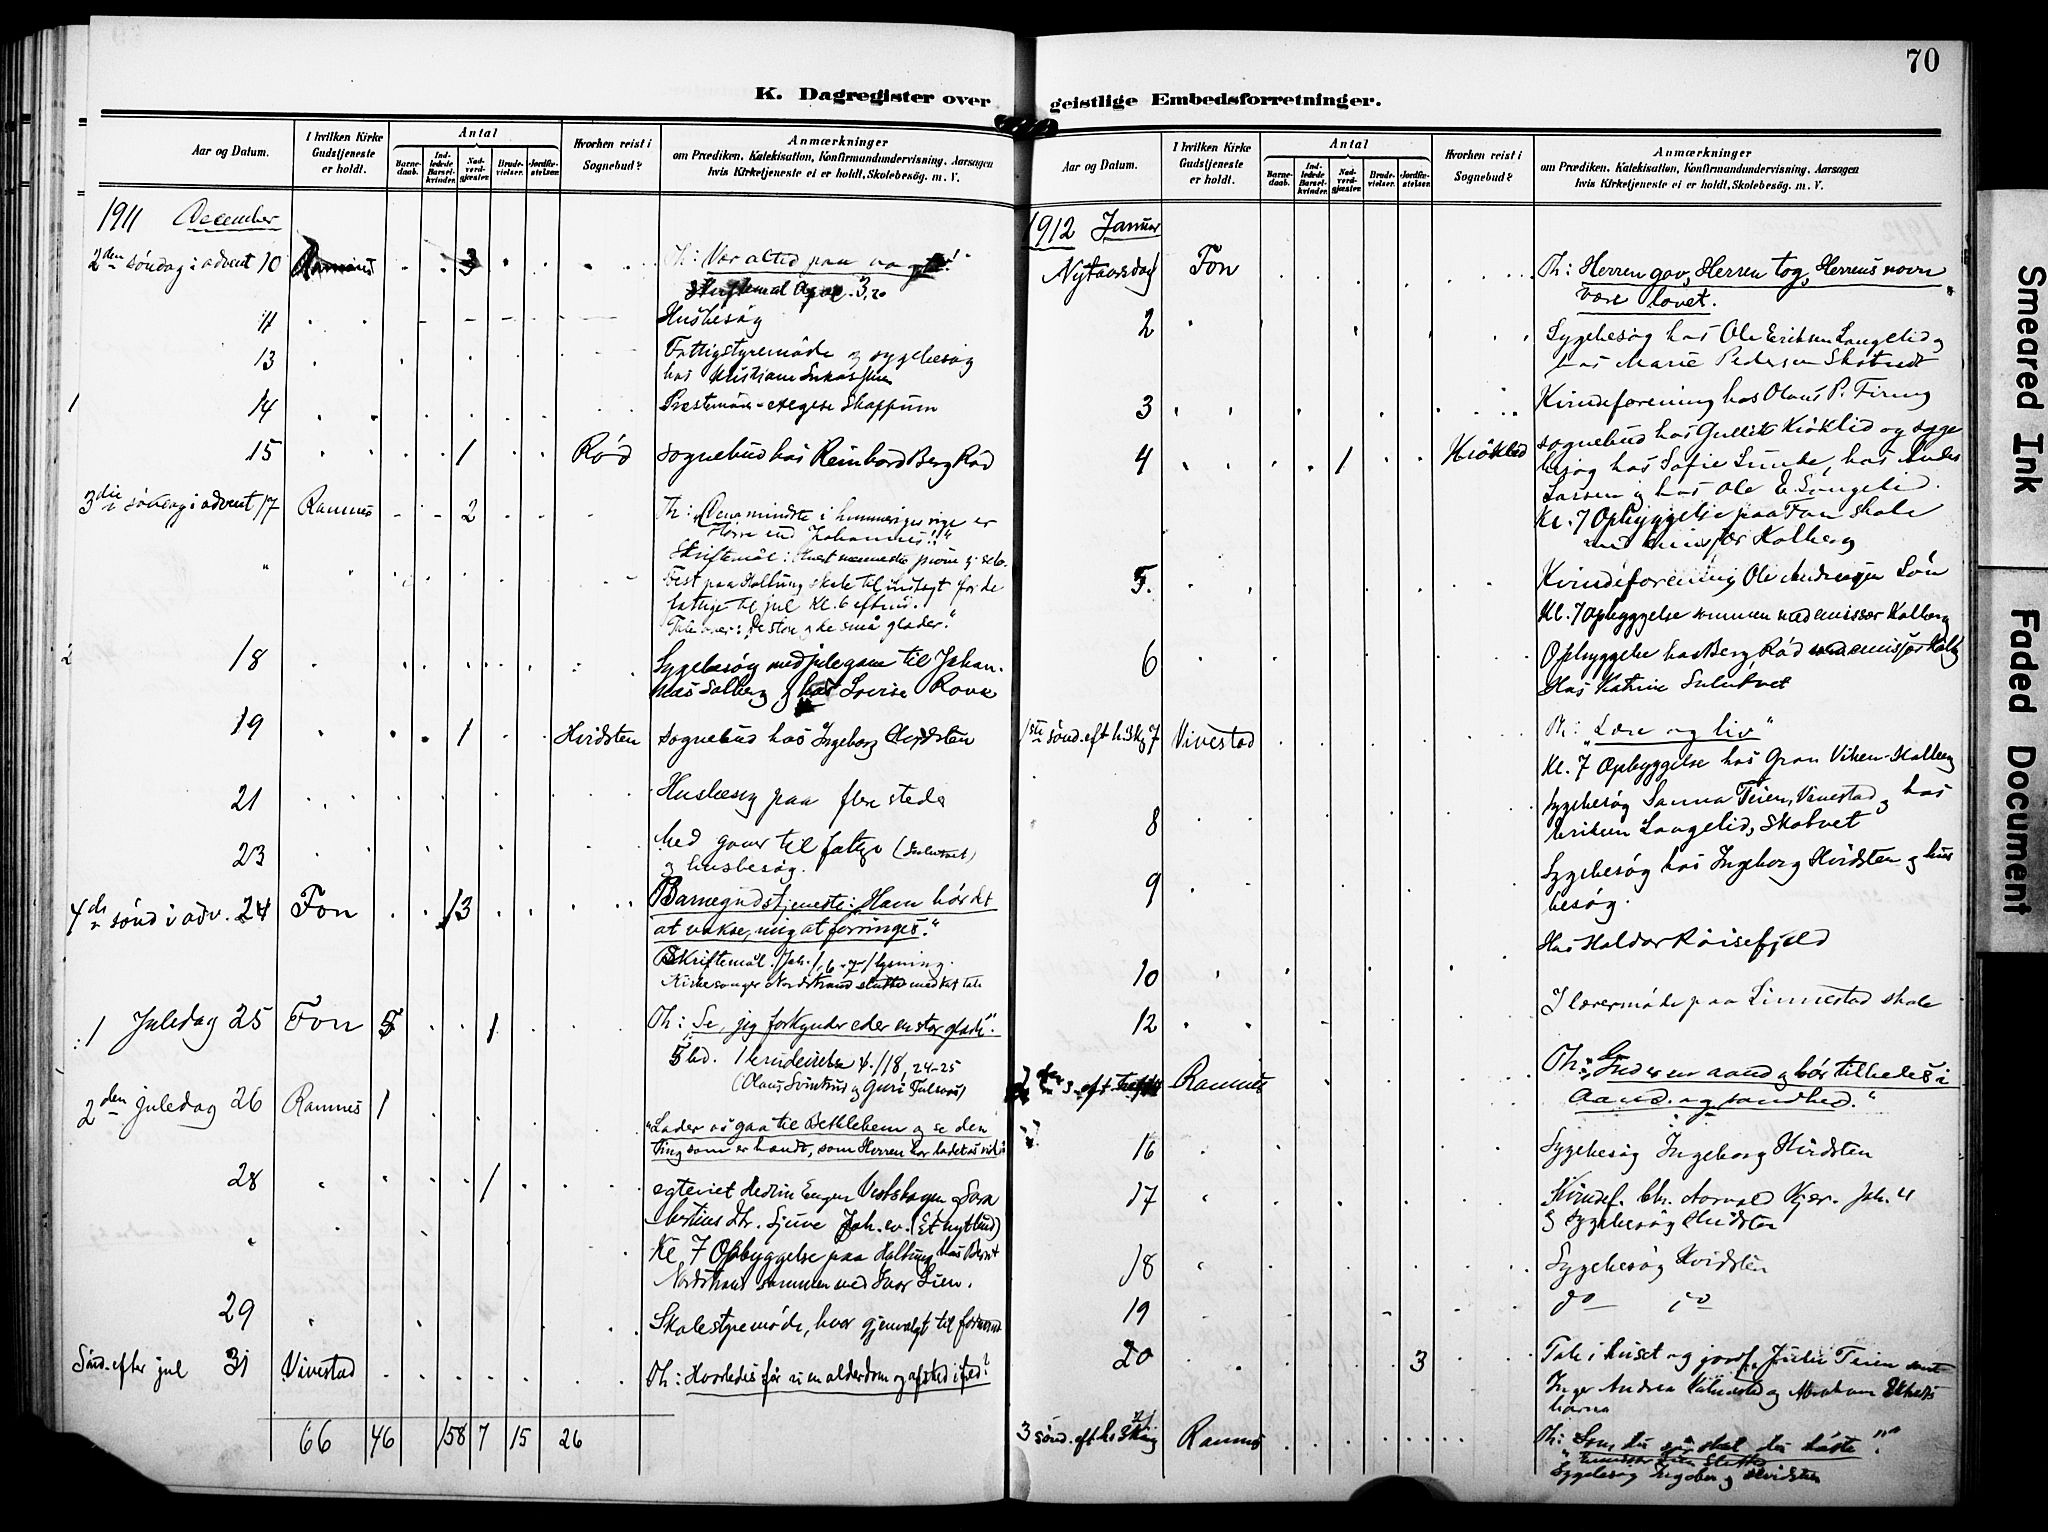 70
K. Dagregister over geistlige Embedsforretninger.
Aar og Datum.
I hvilken Kirke Gudstjeneste er holdt.
Antal
Barne-daab.
Ind-ledede Barsel-kvinder.
Nad-verd-gjæster.
Brude-vielser.
Jordfæ-stelser.
Hvorhen reist i Sognebud?
Anmærkninger
om Prædiken, Katekisation, Konfirmandundervisning, Aarsagen
hvis Kirketjeneste ei er holdt, Skolebesøg. m. V.
1911 December
2den søndag i advent 10 Ramnæs 3 Th: Vær altid paa
3,20
11 Husbesøg
13 Fattigstyremøde og sygebesøg
hos Kristiane
1 14 Prestemøde Skoppum
15 1 Rød Sognebud hos Reinhard Berg Rød
3die søndag i advent 17 Ramnes 2 Th: Den mindste i himmeriges rige er
større end Johannes!!"
Skriftemål:
Fest paa Haltung skole til indtægt for de
fattige til jul Kl. 6 eftm.
store og de små glæder."
2 18 Sygebesøg med julegave til Johan-
nes Solberg og hos Lovise Rove
19 1 Hvidsten Sognebud hos Ingeborg Hvidsten
21 Husbesøg paa flere steder
23 Med gaver til fattige
og husbesøg.
4de sønd i adv. 24 Fon 13 Barnegudstjeneste: Ham bør det
at vokse, mig at forringes."
Skriftemål. Joh. 1, 6-7 lysning.
Kirkesanger Nordstrand sluttede med
1 Juledag 25 Fon 5 1 Th: Se, jeg forkynder eder en stor glæde".
5 bd. 1 brudevielse 4. 118, 24-25
2den juledag 26 Ramnes 1
"Lader os gaa til Bethlehem og se den
ting som er hændt, som Herren har ladet os vide"
28 1 egteviet
(Et nyt bud)
Kl 7 Opbyggelse paa Haltung hos Bernt
Nordstrand sammen med Ivar Lien.
29 Skolestyremøde, hvor gjenvalgt til formand
Sønd. efter jul 31 Vivestad Th: Hvorledes får vi en alderdom og afsked i fred?
66 46 158 7 15 26
Aar og Datum.
I hvilken Kirke Gudstjeneste er holdt.
Antal
Barne-daab.
Ind-ledede Barsel-kvinder.
Nad-verd-gjæster.
Brude-vielser.
Jordfæ-stelser.
Hvorhen reist i Sognebud?
Anmærkninger
om Prædiken, Katekisation, Konfirmandundervisning, Aarsagen
hvis Kirketjeneste ei er holdt, Skolebesøg. m. V.
1912 Januar
Nytaarsdag Fon Th: Herren gav, Herren tog, Herrens navn
være lovet."
2 Sygebesøg hos Ole Eriksen Langelid og
hos Marie Pedersen
3 Kvindeforening hos Olaus P. Firing
4 1 Hiøklid Sognebud hos Gullik Kiøklid og syge
besøg hos Sofie Lunde, hos Anders
Larsen og hos Ole E. Langelid.
Kl. 7 Opbyggelse paa Fon skole
med emissær Kolberg
5. Kvindeforening Ole Andreassen Løn
Kl. 7 Opbyggelse sammen med emissær Kolberg
6 Opbyggelse hos Berg Rød med emissær Kolbg
Hos Katrine
1ste sønd. eft h. 3 kg 7 Vivestad Th: "Lære og liv"
Kl. 7 Opbyggelse hos Gran Viken - Kolberg
8 Sygebesøg Sanna Teien, Vivestad, og hos
Eriksen Langelid, Skatvet
9 Sygebesøg hos Ingeborg Hvidsten og hus
besøg.
10 Hos Haldor Røisefjeld
12 I lærermøde paa Linnestad skole
Ramnes Th: "Gud er en aand og bør tilbedes i
Aand og sandhed."
16 Sygebesøg Ingeborg Hvidsten
17 Kvindef. Joh. 4
og sygebesøg Hvidsten
18 Sygebesøg Hvidsten
19 do do
20 3 Tale i huset og jordf. Julie Teien samt
Inger Andrea og Abraham
børna
3 sønd. eft h. 3 kong 21 Ramnes Th: "Som du sår skal du høste".
Sygebesøg Ingeborg Hvidsten
Smeared Ink
Faded Document